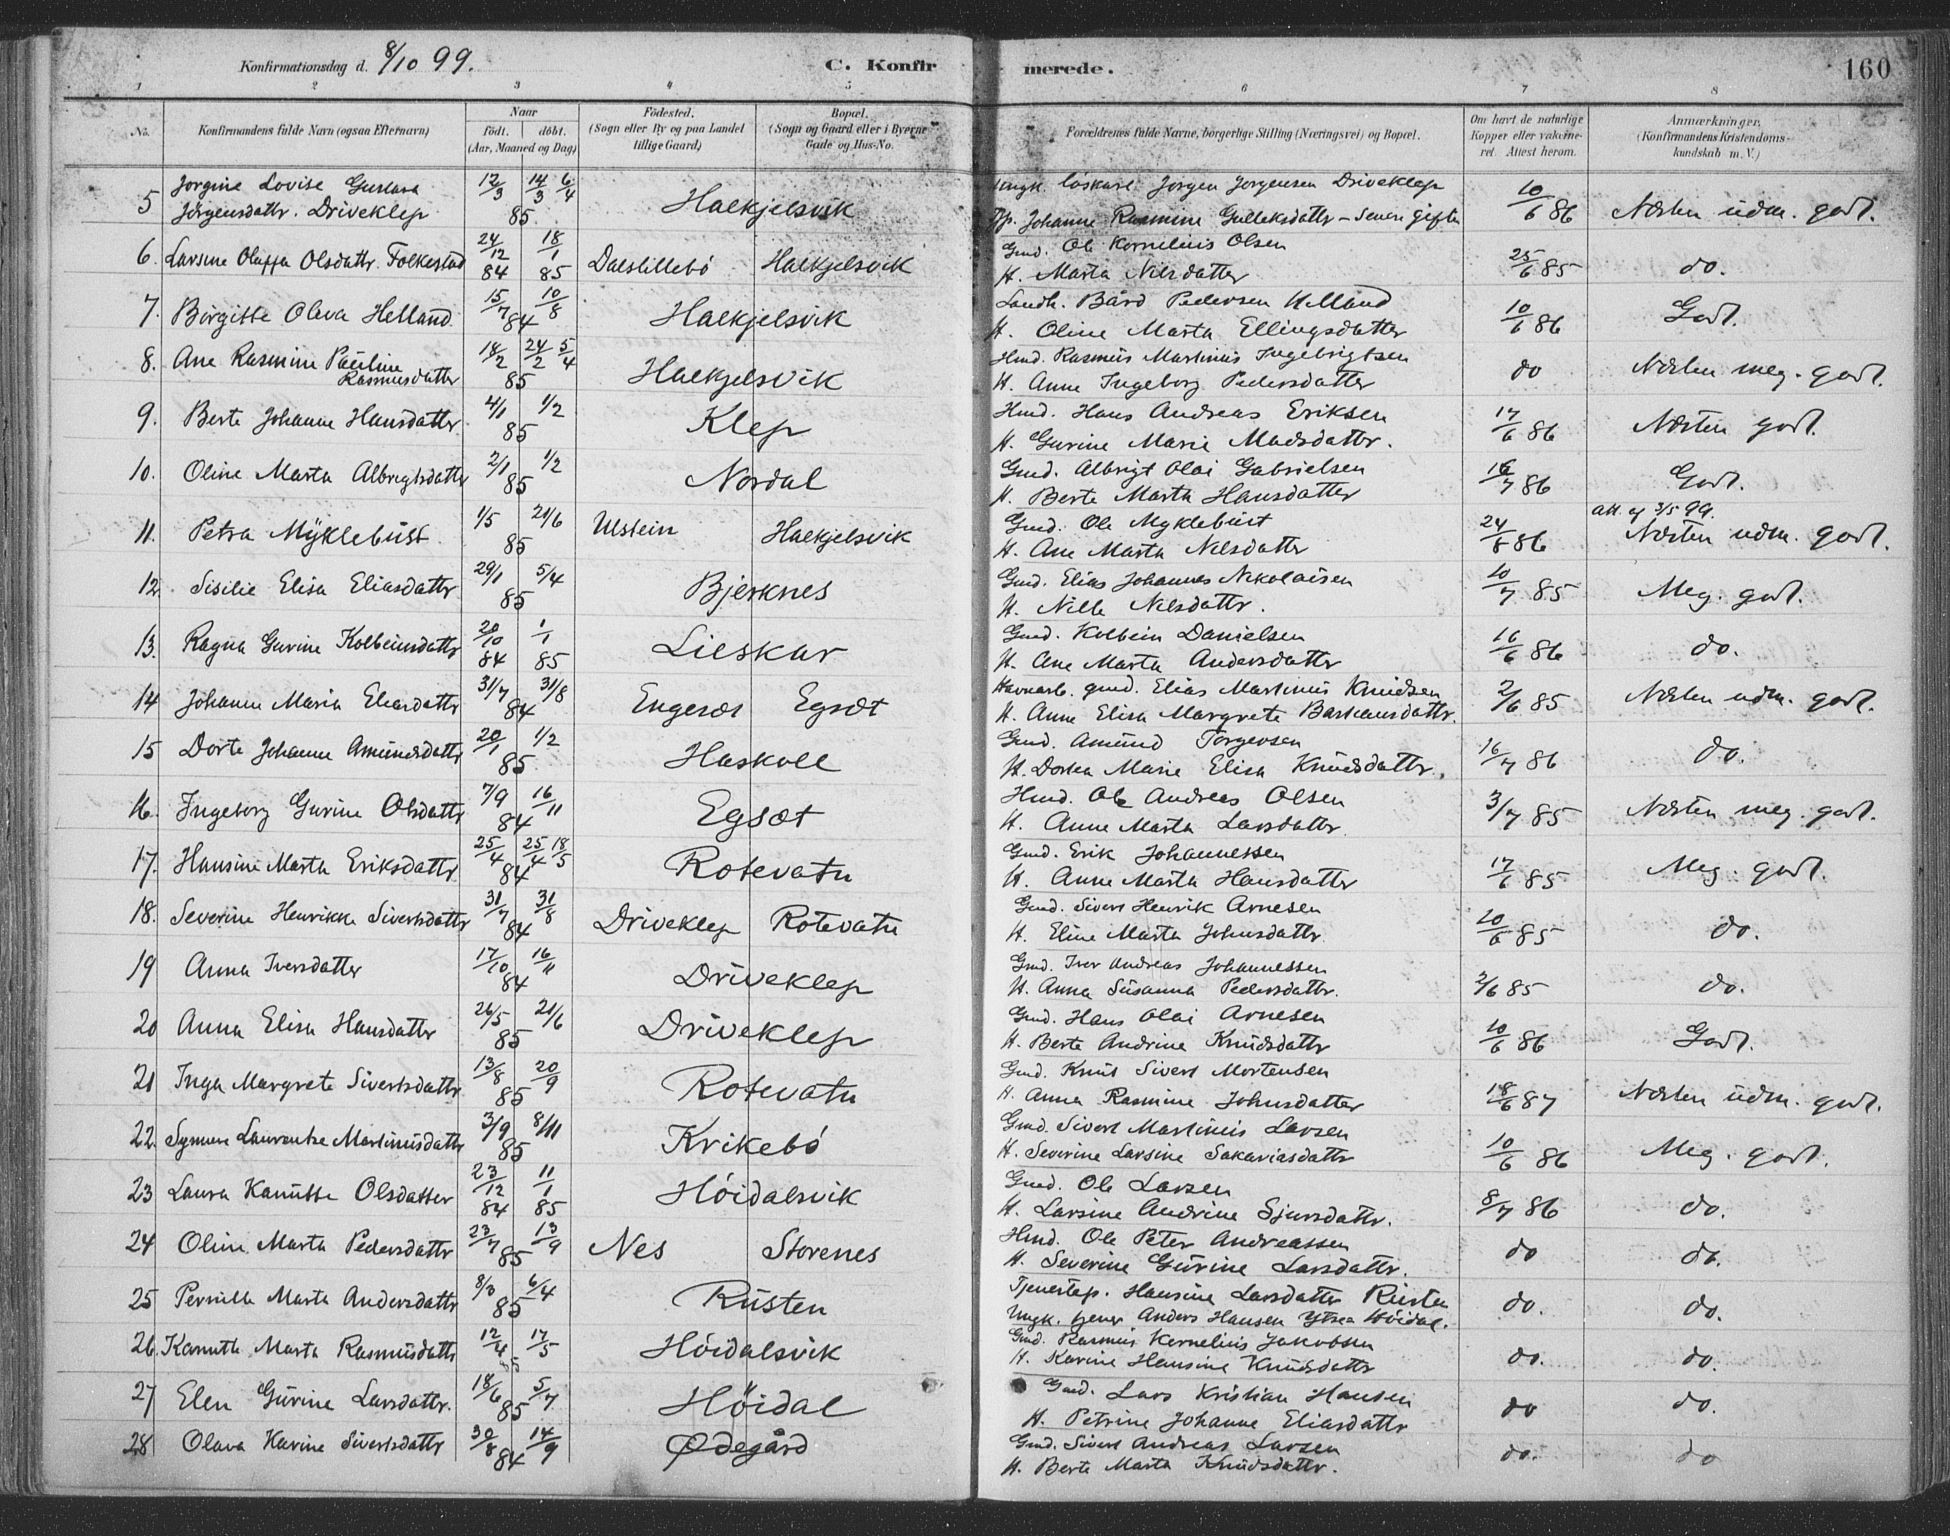 Konfirmationsdag d. 8/10 99. C. Konfirmerede. 160
1 2 3 4 5 6 7 8
No. Konfirmandens fulde Navn (ogsaa Efternavn) Naar født. døbt. (Aar, Maaned og Dag) Fødested. (Sogn eller By og paa Landet tillige Gaard) Bopæl. (Sogn og Gaard eller i Byerne Gade og Hus-No. Forældrenes fulde Navne, borgerlige Stilling (Næringsvei) og Bopæl. Om havt de naturlige Kopper eller vakcineret. Attest herom. Anmærkninger, (Konfirmandens Kristendomskundskab m. V.)
5 Jorgine Lovise Gustava 12/3 14/3 6/4 Ungk. løskarl Jørgen Jørgensen Driveklep
Jörgensdattr. Driveklep 85 Halkjelsvik Tjp. Johanne Rasmine Gulleksdattr - senere giften 10/6 86 Næsten udm. godt.
6. Larsine Oluffa Olsdattr. Folkestad 24/12 84 18/1 85 Dalslillebö Halkjelsvik Gmd. Ole Kornelius Olsen
H. Marta Nilsdatter 25/6 85 do.
7. Birgitte Oleva Helland 15/7 84 10/8 Halkjelsvik Landh. Bård Pedersen Helland
H. Oline Marta Ellingsdatter 10/6 86 Godt.
8. Ane Rasmine Pauline Rasmusdatter 18/2 24/2 5/4 85 Halkjelsvik Hmd. Rasmus Martinus Ingebrigtsen
H. Anne Ingeborg Pedersdatter do Næsten meg. godt.
9. Berte Johanne Hansdatter 4/1 1/2 85 Klep Hmd. Hans Andreas Eriksen
H. Gurine Marie Madsdattr. 17/6 86 Næsten godt.
10. Oline Marta Albregtsdatter 2/1 1/2 85 Nordal Gmd. Albrigt Olai Gabrielsen
H. Berte Marta Hansdatter 16/7 86 Godt.
11. Petra Myklebust 1/5 21/6 85 Ulstein Halkjelsvik Gmd. Ole Myklebust
H. Ane Marta Nilsdatter 24/8 86 att. af 3/5 99. Næsten udm. godt.
12. Sisilie Elisa Eliasdattr 29/1 5/4 85 Bjerknes Gmd. Elias Johannes Nikolaisen
H. Nille Nilsdattr. 10/7 85 Meg. godt.
13. Ragna Gurine Kolbeinsdattr 20/10 84 1/1 85 Lieskar Gmd. Kolbein Danielsen
H. Ane Marta Andersdattr 16/6 86 do.
14 Johanne Maria Eliasdattr 31/7 31/8 84 Engeset Egset Havnarb. gmd. Elias Martinus Knudsen
H. Anne Elisa Margrete Bastiansdattr. 2/6 85 Næsten udm. godt.
15 Dorte Johanne Amundsdattr 20/1 1/2 85 Haskoll Gmd. Amund Torgersen
H. Dortea Marie Elisa Knudsdattr. 16/7 86 do.
16. Ingeborg Gurine Olsdattr 7/9 16/11 84 Egset Hmd. Ole Andreas Olsen
H. Anne Marta Larsdattr. 3/7 85 Næsten meg. godt.
17. Hansine Marta Eriksdattr. 25/4 25/4 18/5 84 Rotevatn Gmd. Erik Johannessen
H. Anne Marta Hansdatter 17/6 85 Meg. godt.
18. Severine Henrikke Sivertsdattr 31/7 31/8 84 Driveklep Rotevatn Gmd. Sivert Henrik Arnesen
H. Eline Marta Johnsdattr. 20/6 85 do.
19 Anna Iversdatter 17/10 16/11 84 Driveklep Gmd. Iver Andreas Johannessen
H. Anna Susanna Pedersdattr. 2/6 85 do.
20 Anna Elisa Hansdattr 26/5 21/6 85 Driveklep Gmd. Hans Olai Arnesen
H. Berte Andrine Knudsdattr 10/6 86 Godt.
21 Inga Margrete Sivertsdattr 13/8 20/9 85 Rotevatn Gmd. Knut Sivert Mortensen
H. Anna Rasmine Johnsdatter 18/6 87 Næsten udm. godt.
22. Laurentse Martinusdattr 3/9 8/11 85 Krikebö Gmd. Sivert Martinus Larsen
H. Severine Larsine Sakariasdattr 10/6 86 Meg. godt.
23 Laura Kanutte Olsdatter 23/12 84 11/1 85 Höidalsvik Gmd. Ole Larsen
H. Larsine Andrine Sjursdattr. 8/7 86 do.
24 Oline Marta Pedersdattr 23/7 13/9 85 Nes Storenes Hmd. Ole Peter Andreassen
H. Severine Gurine Larsdattr. do do.
25 Pernille Marta Andersdattr 8/3 6/4 85 Rusten Tjenestep. Hansine Larsdatter Rusten
Ungk. tjener Anders Hansen Ytrea Höidal. do. do.
26. Kanutte Marta Rasmusdattr 12/4 17/5 85 Höidalsvik Gmd. Rasmus Kornelius Jakobsen
H. Karine Hansine Knudsdattr do. do.
27 Elen Gurine Larsdattr. 18/6 5/7 85 Höidal Gmd. Lars Kristian Hansen
H. Petrine Johanne Eliasdattr do do.
28 Olava Karine Sivertsdattr 30/8 14/9 84 Ødegård Gmd. Sivert Andreas Larsen
H. Berte Marta Knudsdattr. do. do